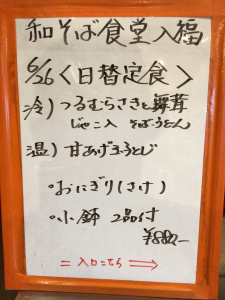 和そば食堂入福
6/26<日替定食>
冷)つるむらさきと舞茸
じゃこ入 そば・うどん
温)甘あげ玉とじ
・おにぎり(さけ)
・小鉢 2品付
¥880-
=入口こちら⇒